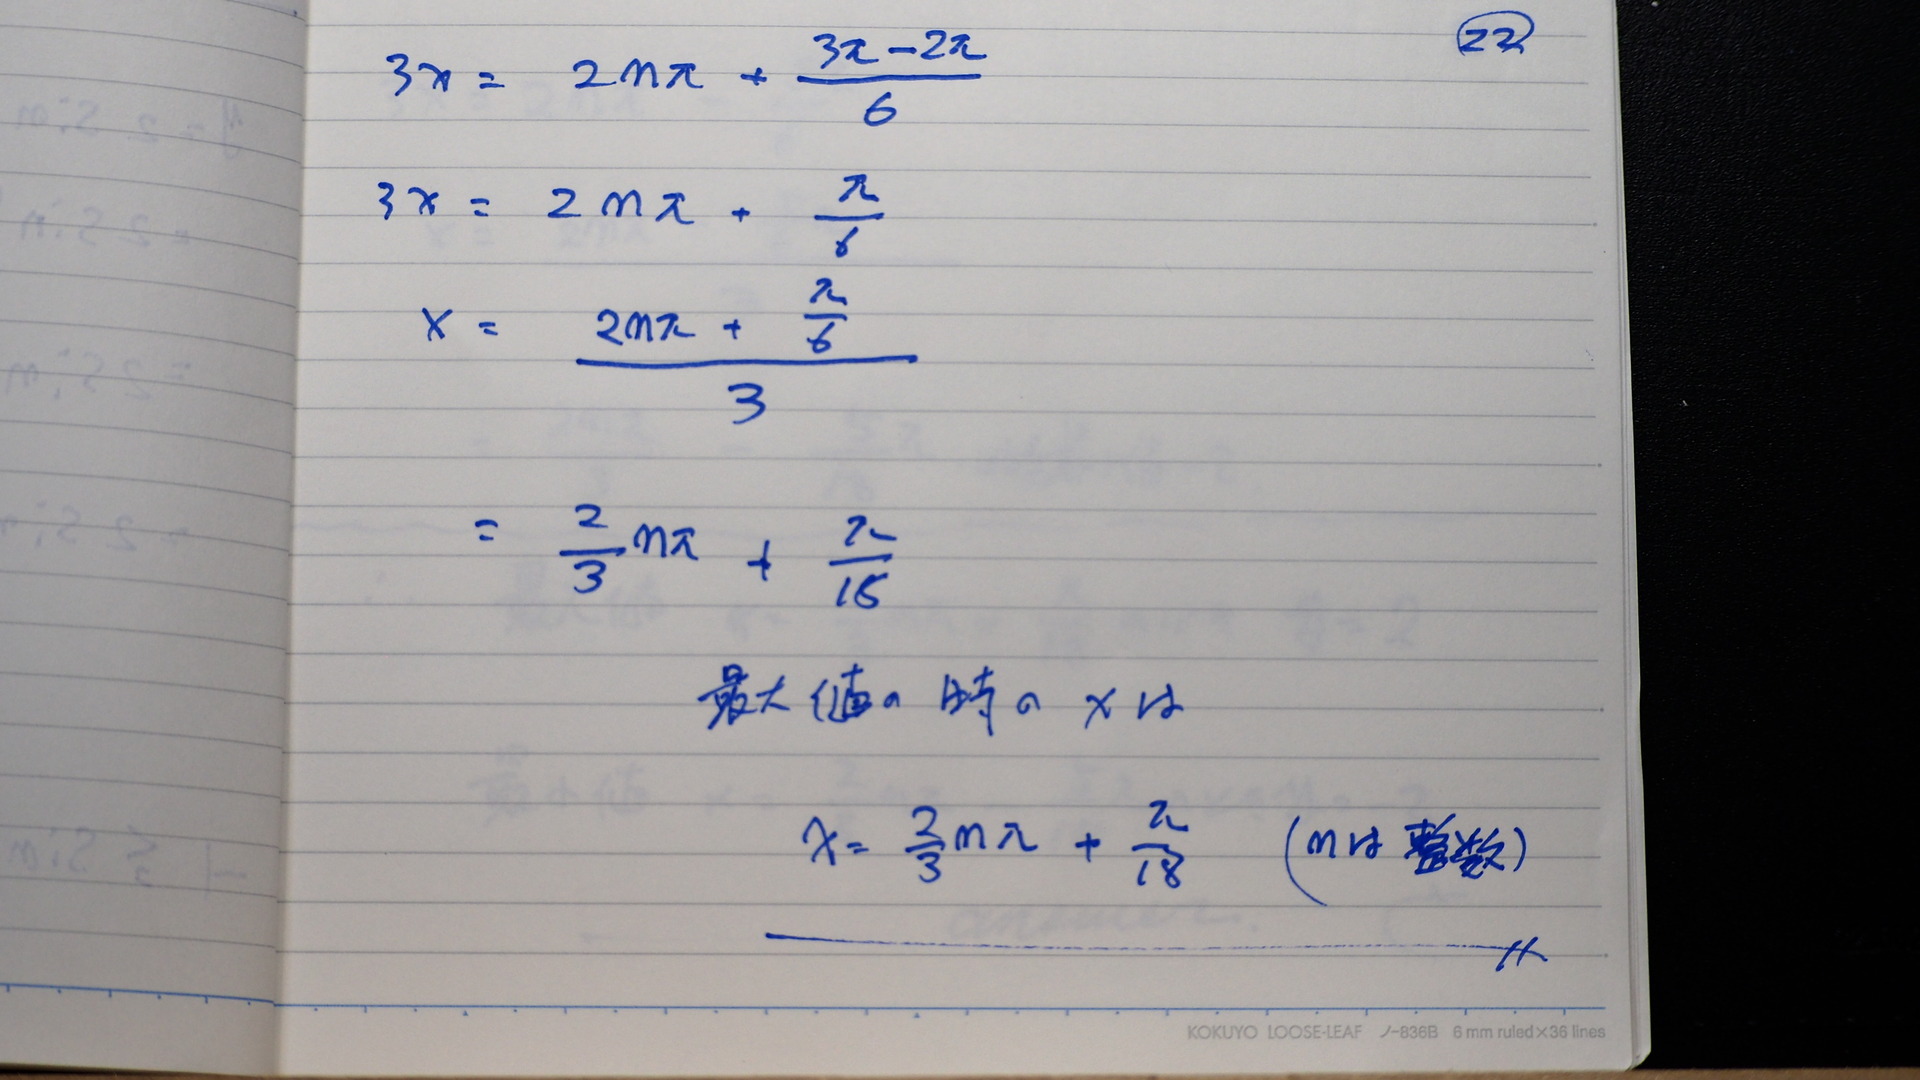 22
3x = 2nπ + (3π-2π)/6
3x = 2nπ + π/6
x = (2nπ + π/6)/3
= 2/3 nπ + π/18
最大値の時のxは
x = 2/3 nπ + π/18 (nは整数)
KOKUYO LOOSE-LEAF ノ-836B 6 mm ruled×36 lines